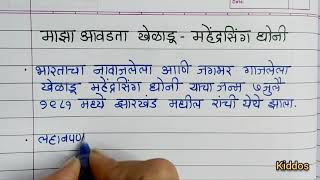 माझा आवडता खेळाडू - महेंद्रसिंग धोनी
• भारताचा नावाजलेला आणि जगभर गाजलेला
खेळाडू महेंद्रसिंग धोनी याचा जन्म ७ जुलै
१९८१ मध्ये झारखंड मधील रांची येथे झाला.
• लहानपण
Kiddos